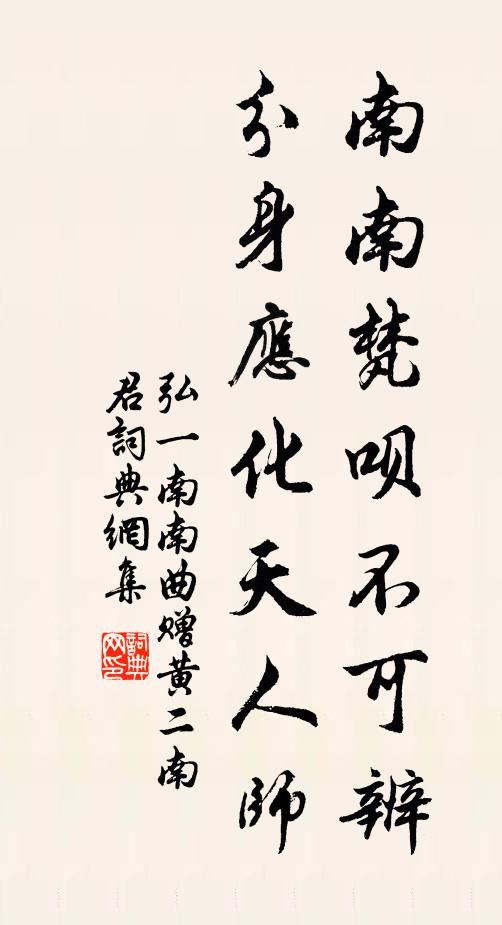 南南梵呗不可辨
分身應化天人師
弘一南南曲赠黄二南
君詞典網集
詞典网印